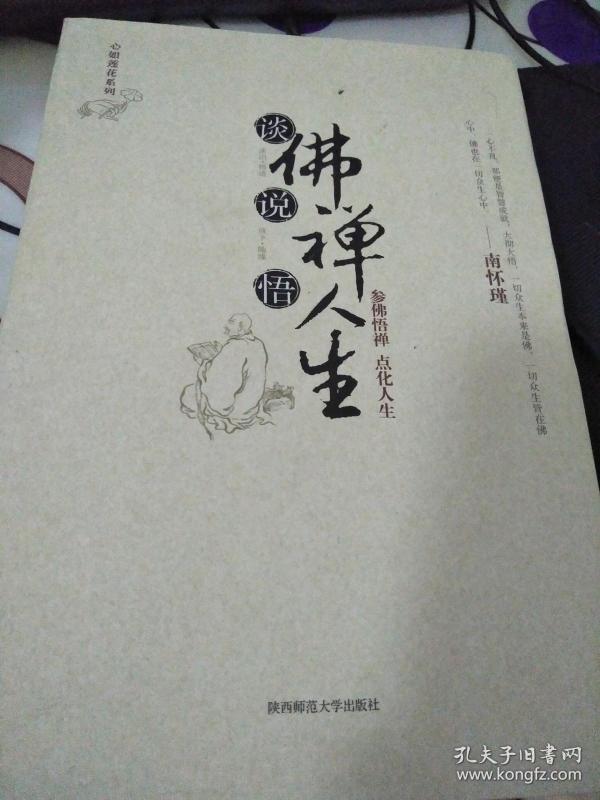 心如莲花系列
谈佛
说禅
悟人生
参佛悟禅 点化人生
一心不乱，那便是智慧成就，大彻大悟，一切众生本来是佛，一切众生皆在佛
心中，佛也在一切众生心中。
——南怀瑾
陕西师范大学出版社
孔夫子旧书网
www.kongfz.com